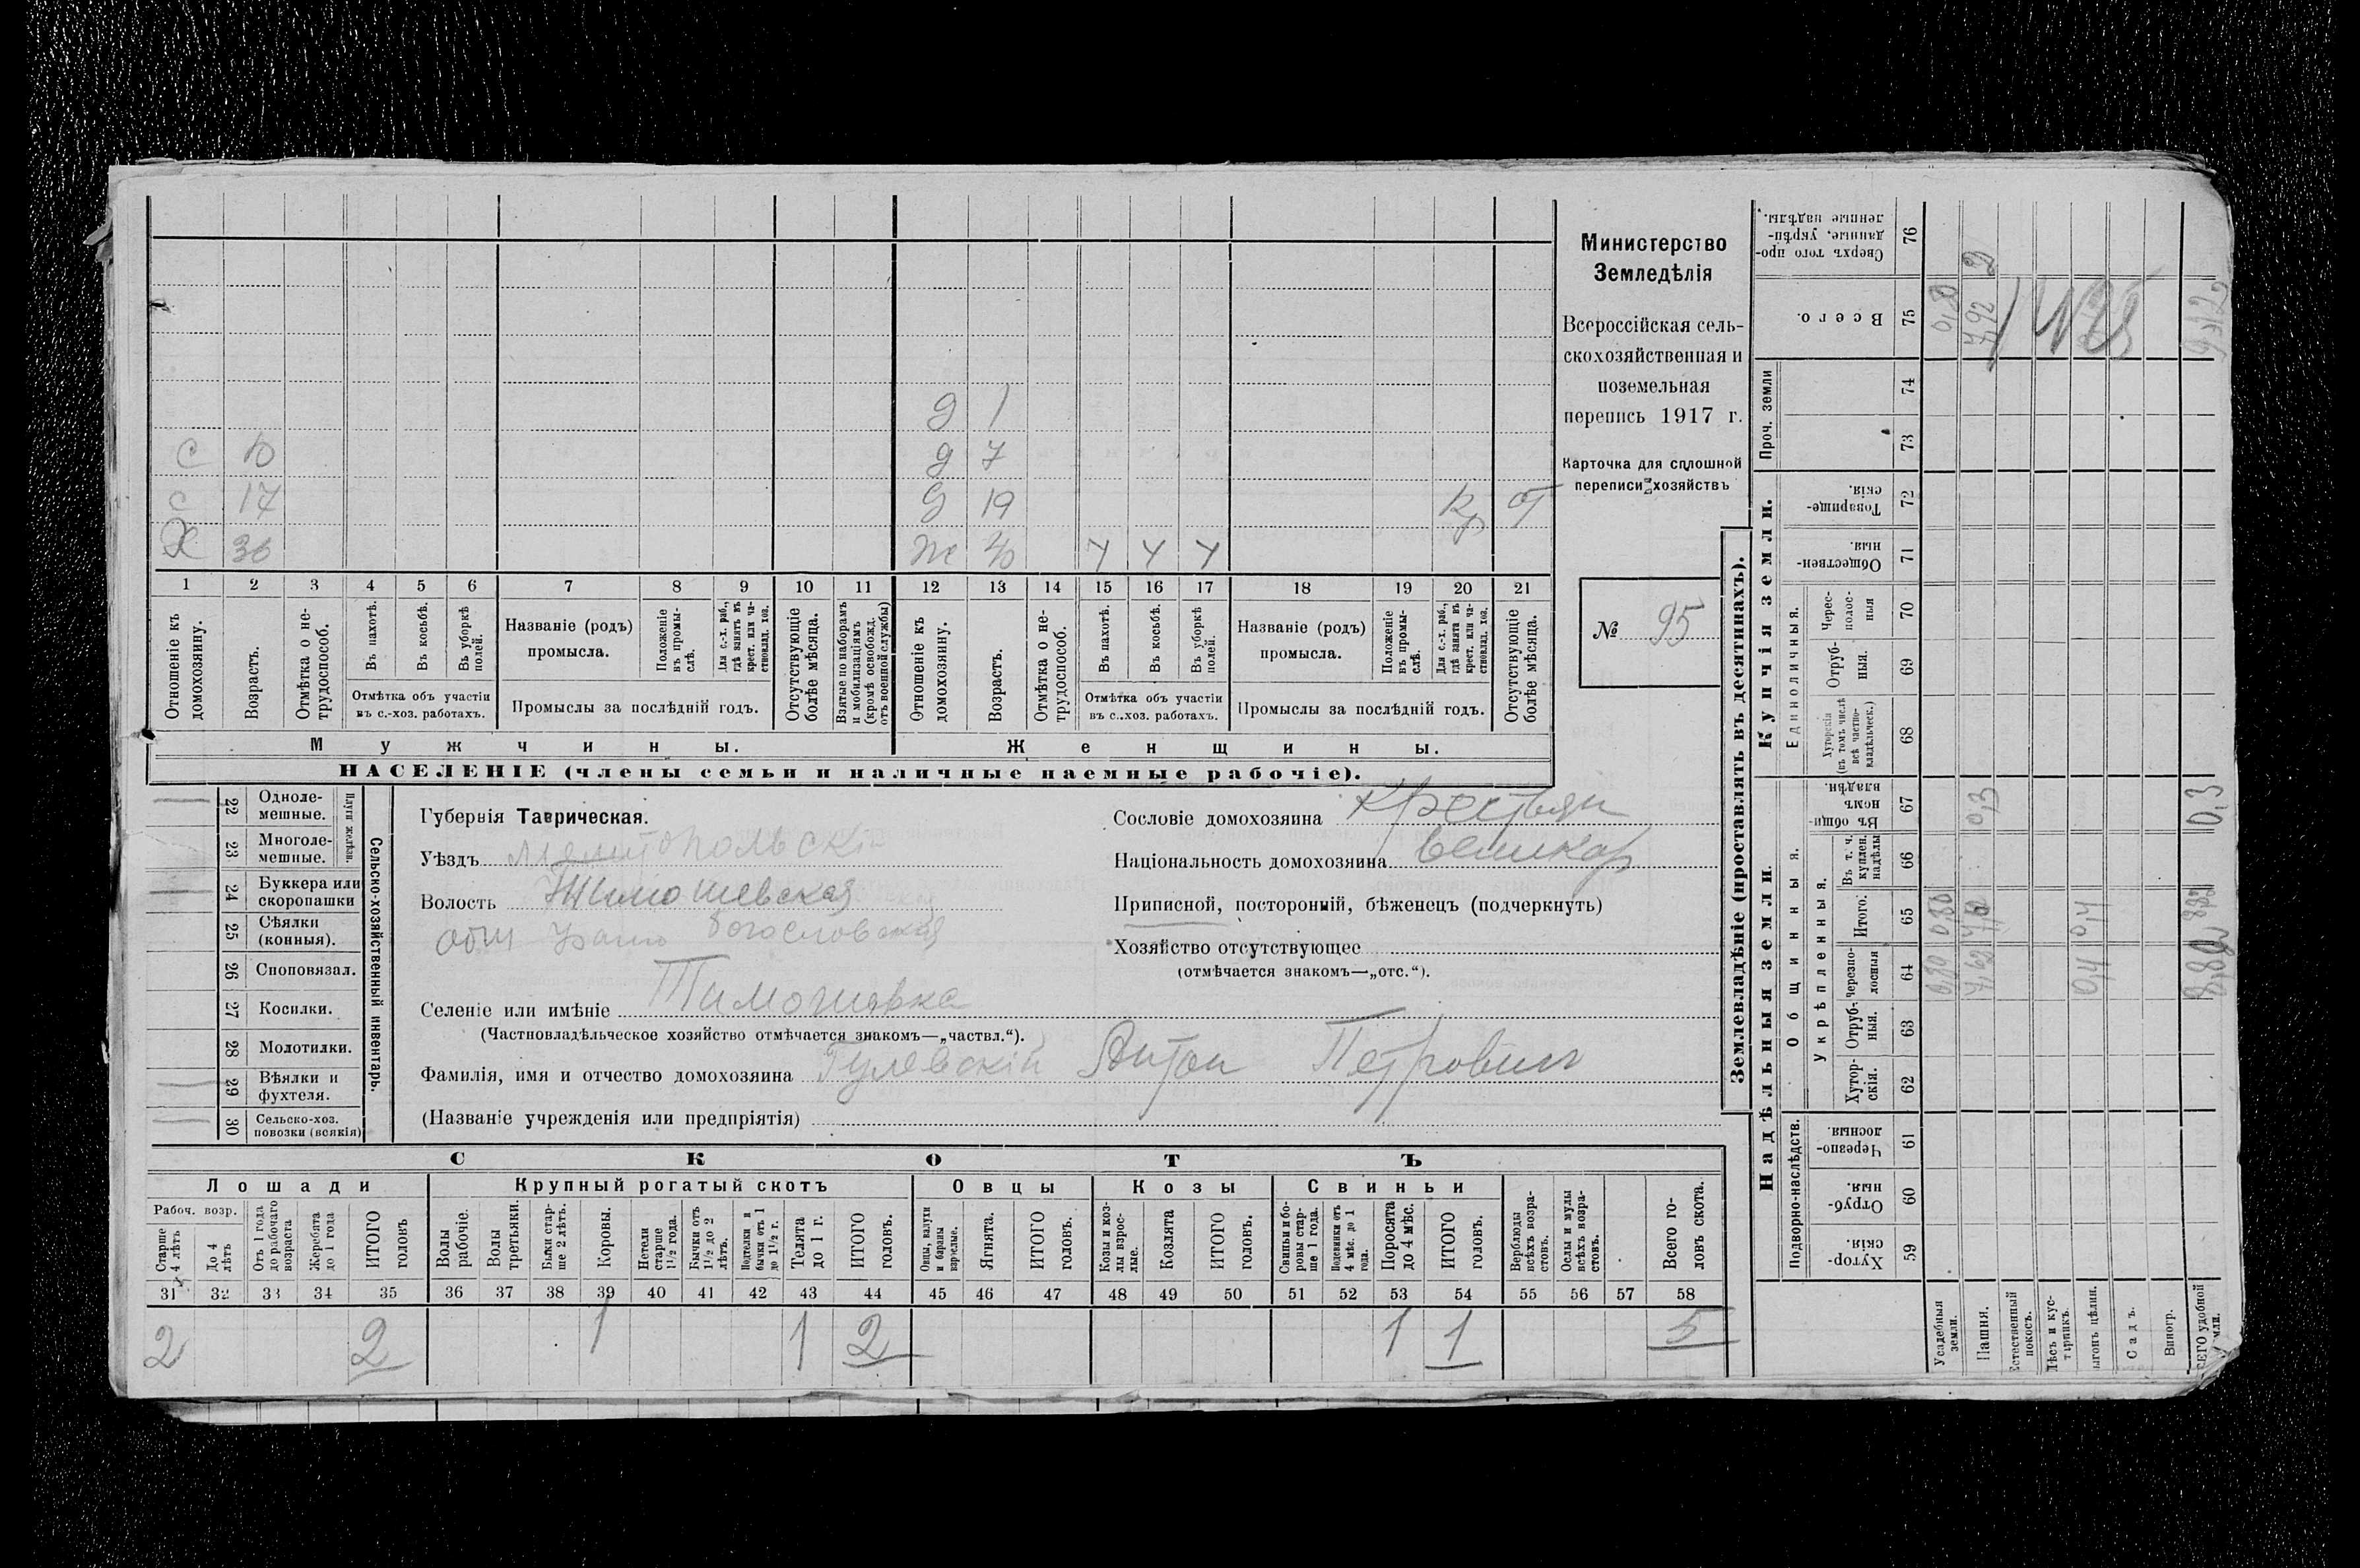 Министерство
Земледѣлія
Всероссійская сель-
скохозяйственная и
поземельная
перепись 1917 г.
Карточка для сплошной
переписи хозяйствъ
№ 95
д 1
с 10 д 7
с 17 д 19 Кр от
Х 36 ж 40
1 2 3 4 5 6 7 8 9 10 11 12 13 14 15 16 17 18 19 20 21
Отношеніе къ домохозяину.
Возрастъ.
Отмѣтка о не-трудоспособ.
Въ пахотѣ.
Въ косьбѣ.
Въ уборкѣ полей.
Отмѣтка объ участіи
въ с.-хоз. работахъ.
Названіе (родъ)
промысла.
Положеніе въ промы-слѣ.
Для с.-х. раб., гдѣ занятъ въ крест. или ча-стновлад. хоз.
Промыслы за послѣдній годъ.
Отсутствующіе болѣе мѣсяца.
Взятые по наборамъ и мобилизаціямъ (кромѣ освобожд. отъ военной службы)
Отношеніе къ домохозяину.
Возрастъ.
Отмѣтка о не-трудоспособ.
Въ пахотѣ.
Въ косьбѣ.
Въ уборкѣ полей.
Отмѣтка объ участіи
въ с.-хоз. работахъ.
Названіе (родъ)
промысла.
Положеніе въ промы-слѣ.
Для с.-х. раб., гдѣ занята въ крест. или ча-стновлад. хоз.
Промыслы за послѣдній годъ.
Отсутствующіе болѣе мѣсяца.
Мужчины. Женщины.
НАСЕЛЕНІЕ (члены семьи и наличные наемные рабочіе).
22 Одноле-мешные.
23 Многоле-мешные.
Плуги желѣзн.
24 Буккера или скоропашки
25 Сѣялки (конныя).
26 Сноповязал.
27 Косилки.
28 Молотилки.
29 Вѣялки и фухтеля.
30 Сельско-хоз. повозки (всякія)
Сельско-хозяйственный инвентарь.
Губернія Таврическая.
Уѣздъ Мелитопольскій
Волость Тимошевская
общ Богословская
Селеніе или имѣніе Тимошевка
(Частновладѣльческое хозяйство отмѣчается знакомъ—„частвл.“).
Фамилія, имя и отчество домохозяина Гулевскій Антон Петрович
(Названіе учрежденія или предпріятія)
Сословіе домохозяина Крестьян
Національность домохозяина великор
Приписной, посторонній, бѣженецъ (подчеркнуть)
Хозяйство отсутствующее
(отмѣчается знакомъ—„отс.“).
СКОТЪ
Лошади Крупный рогатый скотъ Овцы Козы Свиньи
Рабоч. возр.
Старше 4 лѣтъ
До 4 лѣтъ
Отъ 1 года до рабочаго возраста
Жеребята до 1 года
ИТОГО головъ
Волы рабочіе.
Волы третьяки.
Быки стар-ше 2 лѣтъ.
Коровы.
Нетели старше 1½ года.
Бычки отъ 1½ до 2 лѣтъ.
Подтелки и бычки отъ 1 до 1½ г.
Телята до 1 г.
ИТОГО головъ.
Овцы, валухи и бараны взрослые.
Ягнята.
ИТОГО головъ.
Козы и коз-лы взрос-лые.
Козлята
ИТОГО головъ.
Свиньи и бо-ровы стар-ше 1 года.
Подсвинки отъ 4 мѣс. до 1 года.
Поросята до 4 мѣс.
ИТОГО головъ.
Верблюды всѣхъ возра-стовъ.
Ослы и мулы всѣхъ возра-стовъ.
Всего го-ловъ скота.
31 32 33 34 35 36 37 38 39 40 41 42 43 44 45 46 47 48 49 50 51 52 53 54 55 56 57 58
2 2 1 1 2 1 1 5
Землевладѣніе (проставлять въ десятинахъ).
Надѣльныя земли.
Купчія земли.
Проч. земли
Подворно-наслѣдств.
Общинныя.
Укрѣпленныя.
Единоличныя.
Хутор-скія. 59
Отруб-ныя. 60
Черезпо-лосныя. 61
Хутор-скія. 62
Отруб-ныя. 63
Черезпо-лосныя 64
Итого. 65
Въ т. ч. куплен. надѣлы 66
Въ общин-номъ владѣн. 67
Хуторскія (въ томъ числѣ всѣ частно-владѣльческ.) 68
Отруб-ныя. 69
Черес-полос-ныя 70
Обществен-ныя. 71
Товарище-скія. 72
73
74
Всего. 75
Сверхъ того про-данные, укрѣп-ленные надѣлы. 76
Усадебныя земли. 0,80 0,80 0,8
Пашня. 0,3 7,92 2
Естественный покосъ.
Лѣсъ и кус-тарникъ.
ыгонъ цѣлин. 0,4 0,4
Садъ.
Виногр.
ЕГО удобной мли. 0,3